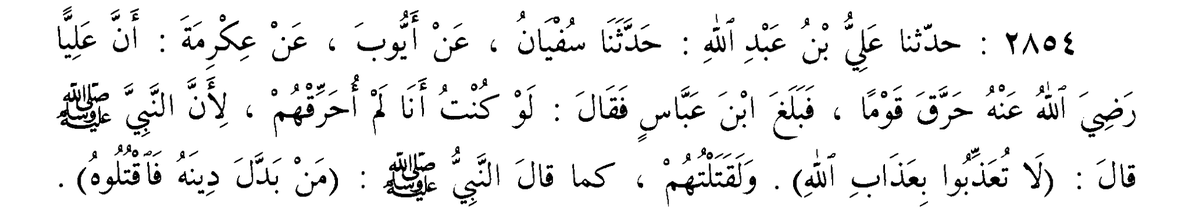 ٢٨٥٤ : حدّثنا عَلِيُّ بْنُ عَبْدِ ٱللهِ : حَدَّثَنَا سُفْيَانُ ، عَنْ أَيُّوبَ ، عَنْ عِكْرِمَةَ : أَنَّ عَلِيًّا
رَضِيَ ٱللهُ عَنْهُ حَرَّقَ قَوْمًا ، فَبَلَغَ ابْنَ عَبَّاسٍ فَقَالَ : لَوْ كُنْتُ أَنَا لَمْ أُحَرِّقْهُمْ ، لِأَنَّ النَّبِيَّ ﷺ
قالَ : (لَا تُعَذِّبُوا بِعَذَابِ ٱللهِ) . وَلَقَتَلْتُهُمْ ، كما قالَ النَّبِيُّ ﷺ : (مَنْ بَدَّلَ دِينَهُ فَٱقْتُلُوهُ) .